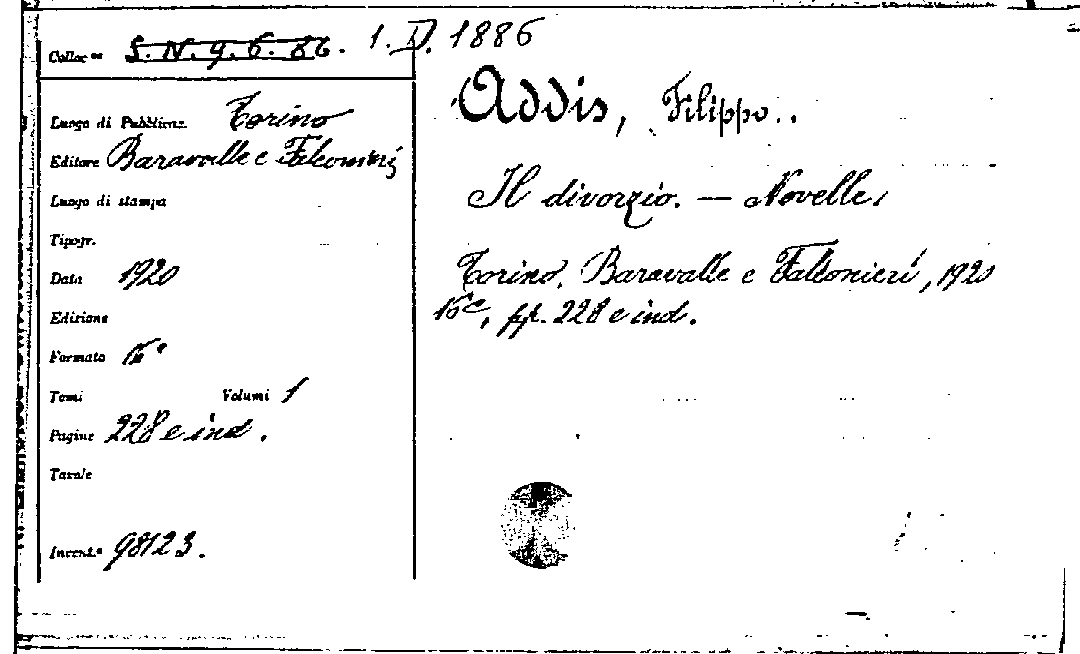 Colloc.ne S. N. 9. 6. 86. 1. D. 1886
Luogo di Pubblicaz. Torino
Editore Baravalle e Falconieri
Luogo di stampa
Tipogr.
Data 1920
Edizione
Formato 16°
Tomi Volumi 1
Pagine 228 e ind.
Tavole
Invent.° 98123.
Addis, Filippo..
Il divorzio. — Novelle.
Torino, Baravalle e Falconieri, 1920
16°, pp. 228 e ind.